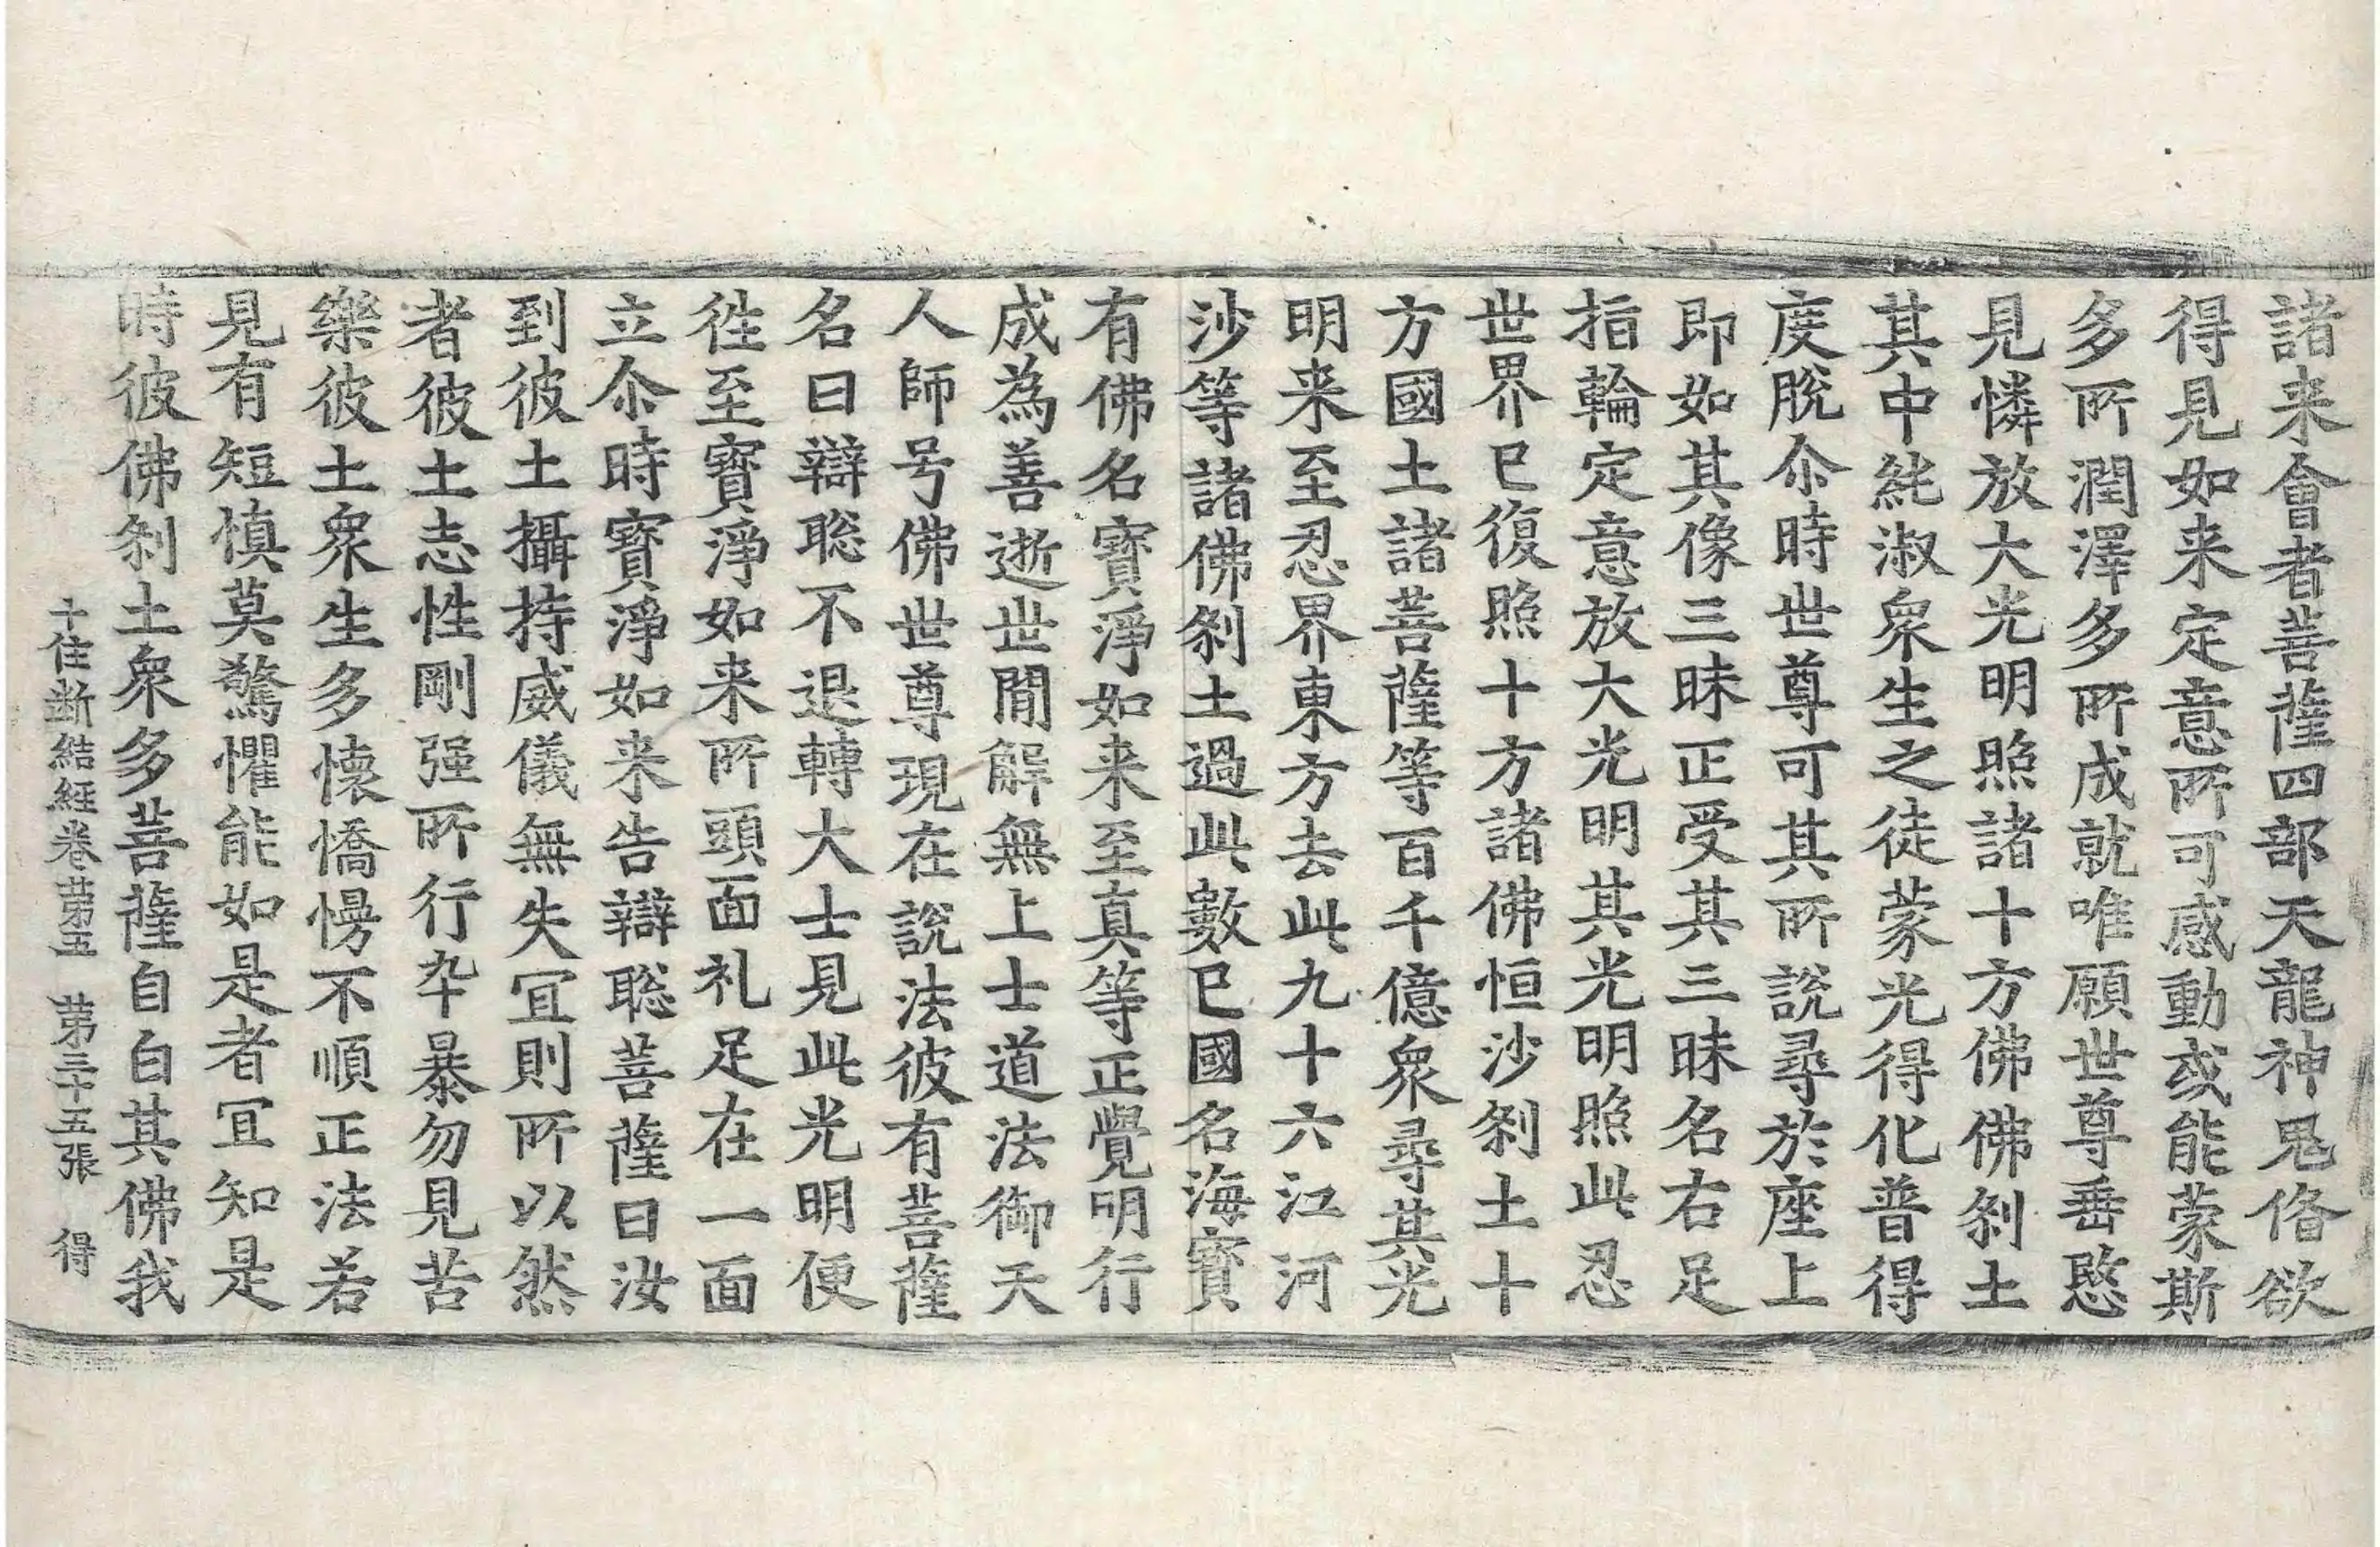 諸来會者菩薩四部天龍神鬼俻欲
得見如来定意所可感動或能蒙斯
多所潤澤多所成就唯願世尊垂愍
見憐放大光明照諸十方佛佛刹土
其中純淑衆生之徒蒙光得化普得
度脫尒時世尊可其所說尋於座上
即如其像三昧正受其三昧名右足
指輪定意放大光明其光明照此忍
世界已復照十方諸佛恒沙刹土十
方國土諸菩薩等百千億衆尋其光
明来至忍界東方去此九十六江河
沙等諸佛刹土過此數已國名海寶
有佛名寶淨如来至真等正覺明行
成為善逝世間解無上士道法御天
人師号佛世尊現在說法彼有菩薩
名曰辯聡不退轉大士見此光明便
徃至寶淨如来所頭面礼足在一面
立尒時寶淨如来告辯聡菩薩曰汝
到彼土攝持威儀無失冝則所以然
者彼土志性剛强所行卒暴勿見苦
樂彼土衆生多懐憍慢不順正法若
見有短慎莫驚懼能如是者冝知是
時彼佛刹土衆多菩薩自白其佛我
十住断結経卷苐五 苐三十五張 得